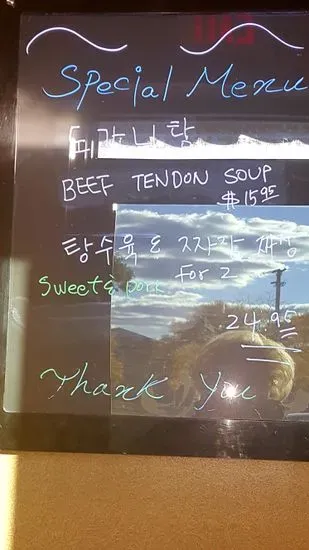 Special Menu
도가니탕
BEEF TENDON SOUP
$15.95
탕수육 &
Sweet & pork For 2
24.95
Thank You